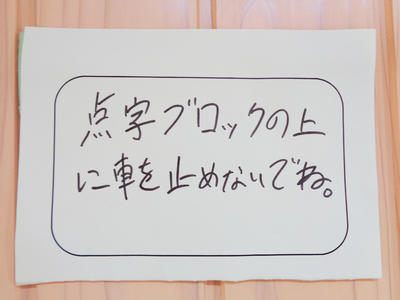 点字ブロックの上
に車を止めないでね。